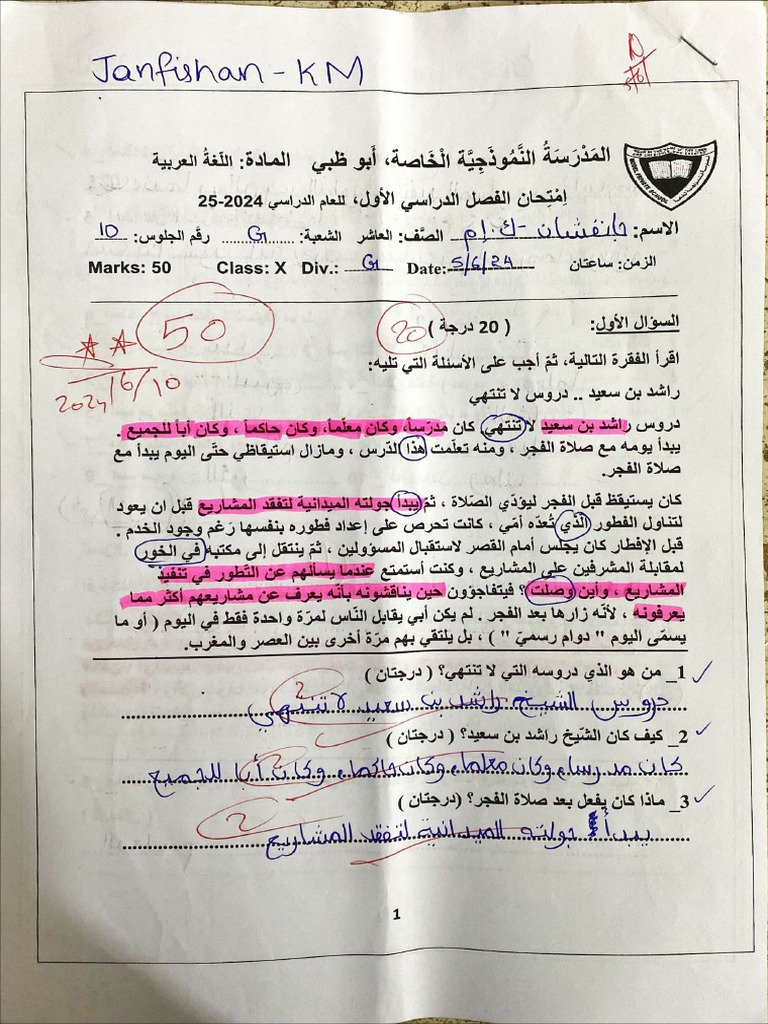 Janfishan - KM
المَدْرَسَةُ النَّمُوذَجِيَّة الْخَاصة، أَبو ظَبي المادة: اللّغةُ العربية
MODEL PRIVATE SCHOOL
اِمْتِحان الفصل الدراسي الأول، للعام الدراسي 2024-25
الاسم: جانفشان - ك. إم الصَّف: العاشر الشعبة: G رقم الجلوس: 10
الزمن: ساعتان Date: 5/6/24 Class: X Div.: G Marks: 50
50
السؤال الأول: ( 20 درجة )
20
16/10
2024
اقرأ الفقرة التالية، ثمّ أجب على الأسئلة التي تليه:
راشد بن سعيد .. دروس لا تنتهي
دروس راشد بن سعيد لا تنتهي كان مدرّسة، وكان معلّماً، وكان حاكماً ، وكان أباً للجميع .
يبدأ يومه مع صلاة الفجر ، ومنه تعلّمت هذا الدّرس ، ومازال استيقاظي حتّى اليوم يبدأ مع
صلاة الفجر.
كان يستيقظ قبل الفجر ليؤدّي الصّلاة ، ثمّ يبدأ جولته الميدانية لتفقد المشاريع قبل ان يعود
لتناول الفطور الّذي تُعدّه أمّي ، كانت تحرص على إعداد فطوره بنفسها رَغم وجود الخدم .
قبل الإفطار كان يجلس أمام القصر لاستقبال المسؤولين ، ثمّ ينتقل إلى مكتبه في الخور
لمقابلة المشرفين على المشاريع ، وكنت أستمتع عندما يسألهم عن التّطور في تنفيذ
المشاريع ، وأين وصلت ؟ فيتفاجؤون حين يناقشونه بأنّه يعرف عن مشاريعهم أكثر مما
يعرفونه ، لأنّه زارها بعد الفجر . لم يكن أبي يقابل النّاس لمرّة واحدة فقط في اليوم ( أو ما
يسمّى اليوم " دوام رسميّ " ) ، بل يلتقي بهم مرّة أخرى بين العصر والمغرب.
1_ من هو الذي دروسه التي لا تنتهي؟ ( درجتان )
دروس الشيخ راشد بن سعيد لا تنتهي
2
2_ كيف كان الشّيخ راشد بن سعيد؟ ( درجتان )
كان مدرسا، وكان معلما، وكان حاكما، وكان أبا للجميع
2
3_ ماذا كان يفعل بعد صلاة الفجر؟ (درجتان )
يبدأ جولته الميدانية لتفقد المشاريع
2
1